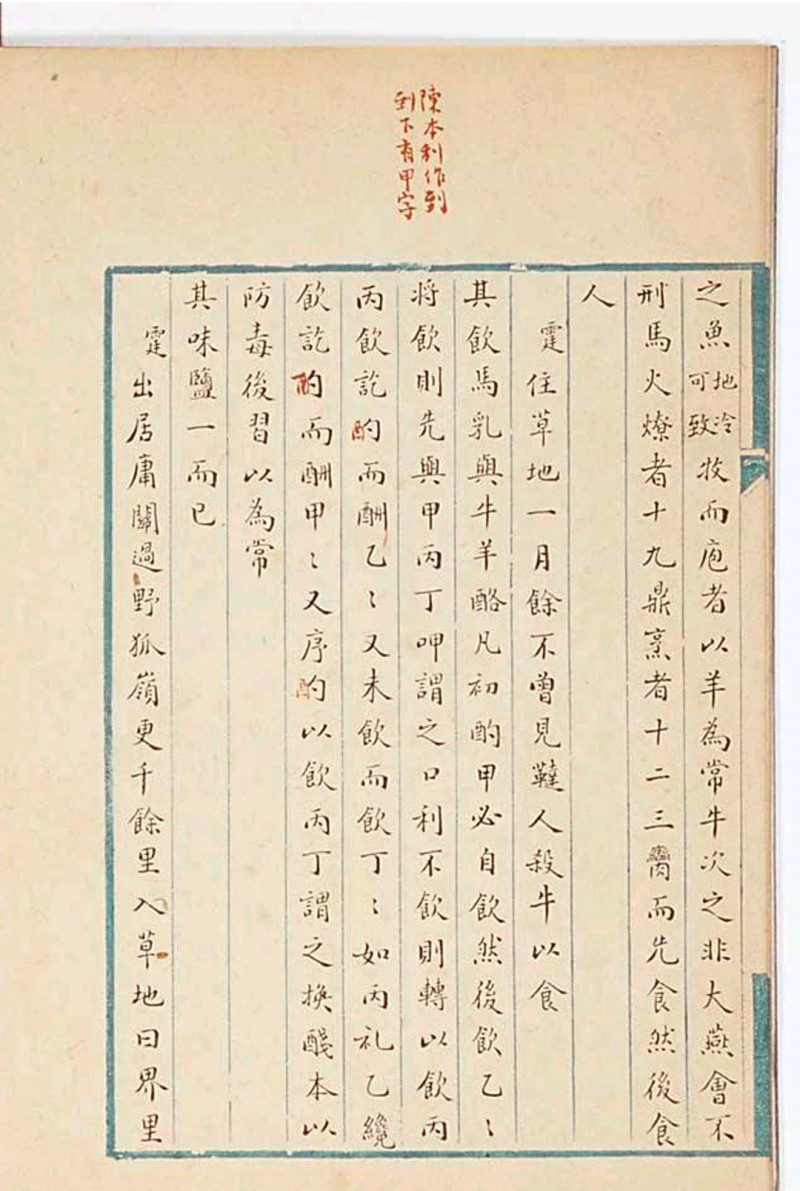 陳本利作到
到下有甲字
之魚地冷可致牧而庖者以羊為常牛次之非大燕會不
刑馬火燎者十九鼎烹者十二三臠而先食然後食
人
霆住草地一月餘不曾見韃人殺牛以食
其飲馬乳與牛羊酪凡初酌甲必自飲然後飲乙〻
將飲則先與甲丙丁呷謂之口利不飲則轉以飲丙
丙飲訖酌而酬乙〻又未飲而飲丁〻如丙礼乙纔
飲訖酌而酬甲〻又序酌以飲丙丁謂之換醆本以
防毒後習以為常
其味鹽一而已
霆出居庸關過野狐嶺更千餘里入草地曰界里